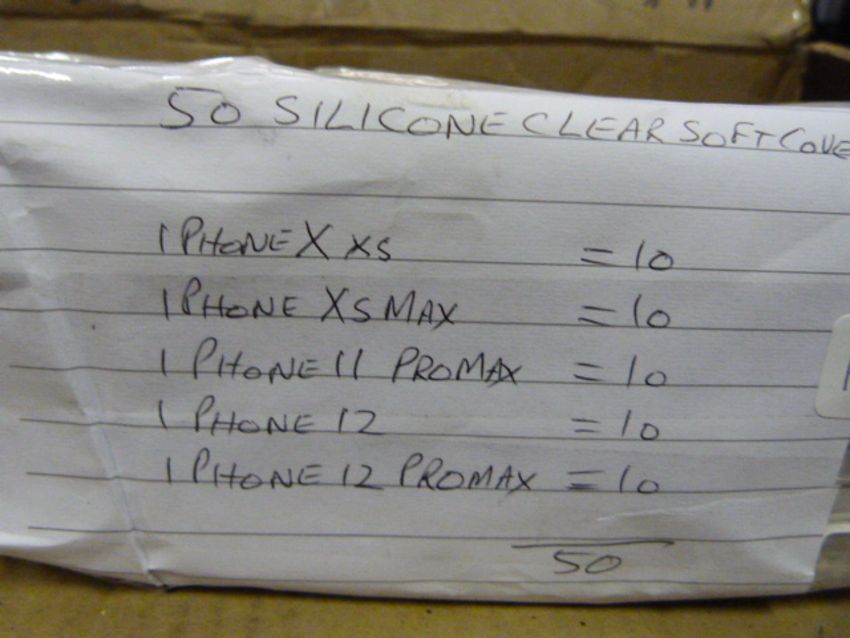 50 SILICONE CLEAR SOFT COVE
IPHONE X XS = 10
IPHONE XS MAX = 10
IPHONE 11 PROMAX = 10
IPHONE 12 = 10
IPHONE 12 PROMAX = 10
50